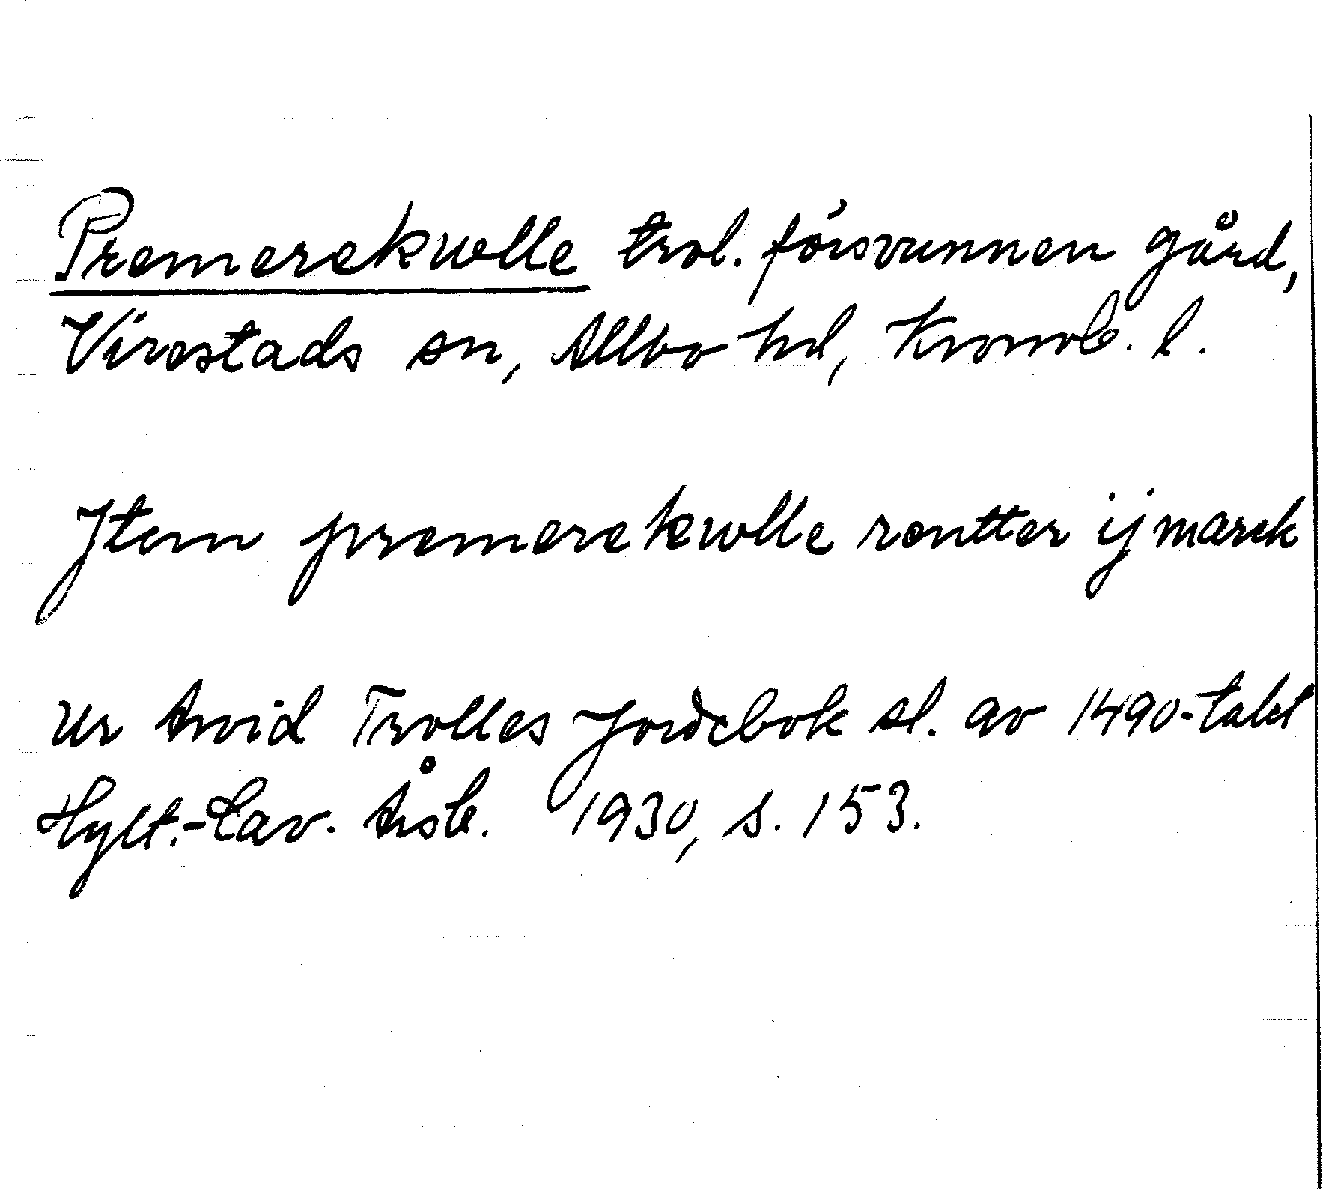 Premerekwlle trol. försvunnen gård,
Virestads sn, Allbo hd, Kronob. l.
Jtem premerekwlle rentter ij marck
Ur Arvid Trolles Jordebok sl. av 1490-talet
Hylt.-Cav. Årsb. 1930, s. 153.